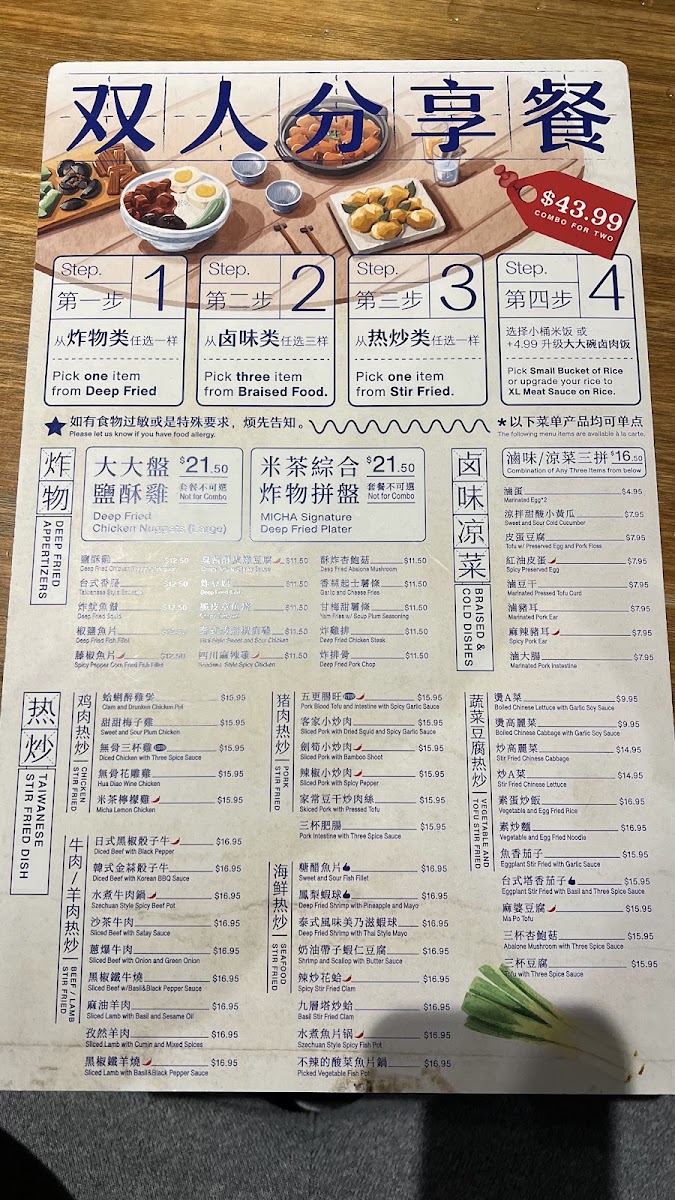 双人分享餐
$43.99
COMBO FOR TWO
Step. 1
第一步
从炸物类任选一样
Pick one item
from Deep Fried
Step. 2
第二步
从卤味类任选三样
Pick three item
from Braised Food.
Step. 3
第三步
从热炒类任选一样
Pick one item
from Stir Fried.
Step. 4
第四步
选择小桶米饭 或
+4.99 升级大大碗卤肉饭
Pick Small Bucket of Rice
or upgrade your rice to
XL Meat Sauce on Rice.
如有食物过敏或是特殊要求，烦先告知。
Please let us know if you have food allergy.
*以下菜单产品均可单点
The following menu items are available à la carte.
炸物
DEEP FRIED
APPERTIZERS
大大盤 $21.50
鹽酥雞 套餐不可選
Not for Combo
Deep Fried
Chicken Nuggets (Large)
米茶綜合 $21.50
炸物拼盤 套餐不可選
Not for Combo
MICHA Signature
Deep Fried Plater
鹽酥雞 $12.50
台式香腸 $12.50
炸魷魚鬚 $12.50
Deep Fried Squid
椒鹽魚片
Deep Fried Fish Fillet
藤椒魚片 $12.50
Spicy Pepper Corn Fried Fish Fillet
$11.50
$11.50
$11.50
$11.50
四川麻辣雞 $11.50
酥炸杏鮑菇 $11.50
Deep Fried Abalone Mushroom
香蒜起士薯條 $11.50
Garlic and Cheese Fries
甘梅甜薯條 $11.50
Yam Fries w/ Soup Plum Seasoning
炸雞排 $11.50
Deep Fried Chicken Steak
炸排骨 $11.50
Deep Fried Pork Chop
卤味凉菜
BRAISED &
COLD DISHES
滷味/涼菜三拼 $16.50
Combination of Any Three Items from below
滷蛋 $4.95
Marinated Egg*2
涼拌甜酸小黃瓜 $7.95
Sweet and Sour Cold Cucumber
皮蛋豆腐 $7.95
Tofu w/ Preserved Egg and Pork Floss
紅油皮蛋 $7.95
Spicy Preserved Egg
滷豆干 $7.95
Marinated Pressed Tofu Curd
滷豬耳 $7.95
Marinated Pork Ear
麻辣豬耳 $7.95
Spicy Pork Ear
滷大腸 $7.95
Marinated Pork Intestine
热炒
TAIWANESE
STIR FRIED DISH
鸡肉热炒
CHICKEN
STIR FRIED
蛤蜊醉雞煲 $15.95
Clam and Drunken Chicken Pot
甜甜梅子雞 $15.95
Sweet and Sour Plum Chicken
無骨三杯雞 $15.95
Diced Chicken with Three Spice Sauce
無骨花雕雞 $15.95
Hua Diao Wine Chicken
米茶檸檬雞 $15.95
Micha Lemon Chicken
牛肉/羊肉热炒
BEEF / LAMB
STIR FRIED
日式黑椒骰子牛 $16.95
Diced Beef with Black Pepper
韓式金蒜骰子牛 $16.95
Diced Beef with Korean BBQ Sauce
水煮牛肉鍋 $16.95
Szechuan Style Spicy Beef Pot
沙茶牛肉 $16.95
Sliced Beef with Satay Sauce
蔥爆牛肉 $16.95
Sliced Beef with Onion and Green Onion
黑椒鐵牛燒 $16.95
Sliced Beef w/Basil&Black Pepper Sauce
麻油羊肉 $16.95
Sliced Lamb with Basil and Sesame Oil
孜然羊肉 $16.95
Sliced Lamb with Cumin and Mixed Spices
黑椒鐵羊燒 $16.95
Sliced Lamb with Basil&Black Pepper Sauce
猪肉热炒
PORK
STIR FRIED
五更腸旺 $15.95
Pork Blood Tofu and Intestine with Spicy Garlic Sauce
客家小炒肉 $15.95
Sliced Pork with Dried Squid and Spicy Garlic Sauce
劍筍小炒肉 $15.95
Sliced Pork with Bamboo Shoot
辣椒小炒肉 $15.95
Sliced Pork with Spicy Pepper
家常豆干炒肉絲 $15.95
Skiced Pork with Pressed Tofu
三杯肥腸 $15.95
Pork Intestine with Three Spice Sauce
海鮮热炒
SEAFOOD
STIR FRIED
糖醋魚片 $16.95
Sweet and Sour Fish Fillet
鳳梨蝦球 $16.95
Deep Fried Shrimp with Pineapple and Mayo
泰式風味美乃滋蝦球 $16.95
Deep Fried Shrimp with Thai Style Mayo
奶油帶子蝦仁豆腐 $16.95
Shrimp and Scallop with Butter Sauce
辣炒花蛤 $16.95
Spicy Stir Fried Clam
九層塔炒蛤 $16.95
Basil Stir Fried Clam
水煮魚片锅 $16.95
Szechuan Style Spicy Fish Pot
不辣的酸菜魚片鍋 $16.95
Picked Vegetable Fish Pot
蔬菜豆腐热炒
VEGETABLE AND
TOFU STIR FRIED
燙A菜 $9.95
Boiled Chinese Lettuce with Garlic Soy Sauce
燙高麗菜 $9.95
Boiled Chinese Cabbage with Garlic Soy Sauce
炒高麗菜 $14.95
Stir Fried Chinese Cabbage
炒A菜 $14.95
Stir Fried Chinese Lettuce
素蛋炒飯 $16.95
Vegetable and Egg Fried Rice
素炒麵 $16.95
Vegetable and Egg Fried Noodle
魚香茄子 $15.95
Eggplant Stir Fried with Garlic Sauce
台式塔香茄子 $15.95
Eggplant Stir Fried with Basil and Three Spice Sauce
麻婆豆腐 $15.95
Ma Po Tofu
三杯杏鮑菇 $15.95
Abalone Mushroom with Three Spice Sauce
三杯豆腐 $15.95
Tofu with Three Spice Sauce